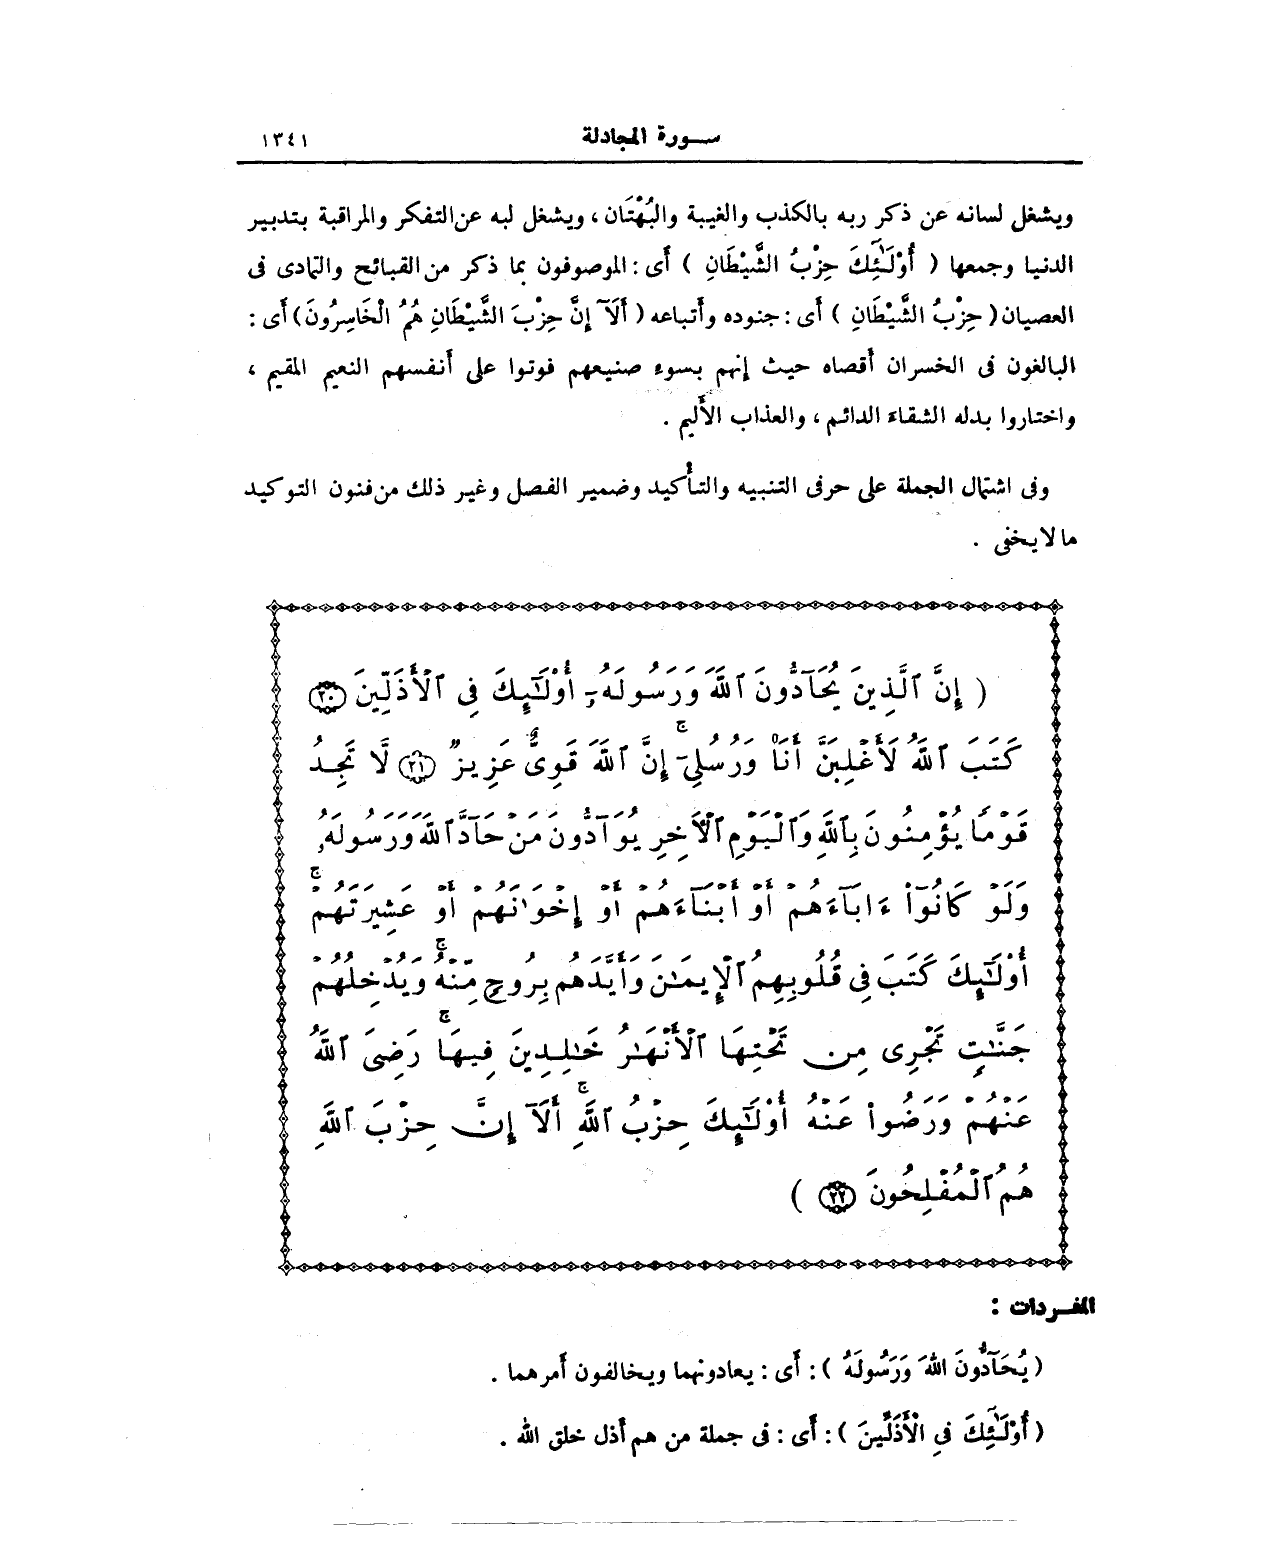 سورة المجادلة ١٣٤١
ويشغل لسانه عن ذكر ربه بالكذب والغيبة والبُهْتَان ، ويشغل لبه عن التفكر والمراقبة بتدبير
الدنيا وجمعها ( أُوْلَـٰٓئِكَ حِزْبُ الشَّيْطَانِ ) أَى : الموصوفون بما ذكر من القبائح والتمادى فى
العصيان ( حِزْبُ الشَّيْطَانِ ) أَى : جنوده وأَتباعه ( أَلَآ إِنَّ حِزْبَ الشَّيْطَانِ هُمُ الْخَاسِرُونَ ) أَى :
البالغون فى الخسران أَقصاه حيث إنهم بسوء صنيعهم فوتوا على أَنفسهم النعيم المقيم ،
واختاروا بدله الشقاء الدائم ، والعذاب الأَليم .
وفى اشتمال الجملة على حرفى التنبيه والتأْكيد وضمير الفصل وغير ذلك من فنون التوكيد
ما لا يخفى .
( إِنَّ ٱلَّذِينَ يُحَآدُّونَ ٱللَّهَ وَرَسُولَهُۥٓ أُوْلَـٰٓئِكَ فِى ٱلْأَذَلِّينَ ٢٠
كَتَبَ ٱللَّهُ لَأَغْلِبَنَّ أَنَا۠ وَرُسُلِىٓ ۚ إِنَّ ٱللَّهَ قَوِىٌّ عَزِيزٌ ٢١ لَّا تَجِدُ
قَوْمًا يُؤْمِنُونَ بِٱللَّهِ وَٱلْيَوْمِ ٱلْأَخِرِ يُوَآدُّونَ مَنْ حَآدَّ ٱللَّهَ وَرَسُولَهُۥ
وَلَوْ كَانُوٓا۟ ءَابَآءَهُمْ أَوْ أَبْنَآءَهُمْ أَوْ إِخْوَٰنَهُمْ أَوْ عَشِيرَتَهُمْ ۚ
أُوْلَـٰٓئِكَ كَتَبَ فِى قُلُوبِهِمُ ٱلْإِيمَـٰنَ وَأَيَّدَهُم بِرُوحٍ مِّنْهُ ۖ وَيُدْخِلُهُمْ
جَنَّـٰتٍ تَجْرِى مِن تَحْتِهَا ٱلْأَنْهَـٰرُ خَـٰلِدِينَ فِيهَا ۚ رَضِىَ ٱللَّهُ
عَنْهُمْ وَرَضُوا۟ عَنْهُ أُوْلَـٰٓئِكَ حِزْبُ ٱللَّهِ ۚ أَلَآ إِنَّ حِزْبَ ٱللَّهِ
هُمُ ٱلْمُفْلِحُونَ ٢٢ )
المفردات :
( يُحَآدُّونَ اللهَ وَرَسُولَهُ ) : أَى : يعادونهما ويخالفون أَمرهما .
( أُوْلَـٰٓئِكَ فِي الْأَذَلِّينَ ) : أَى : فى جملة من هم أَذل خلق الله .